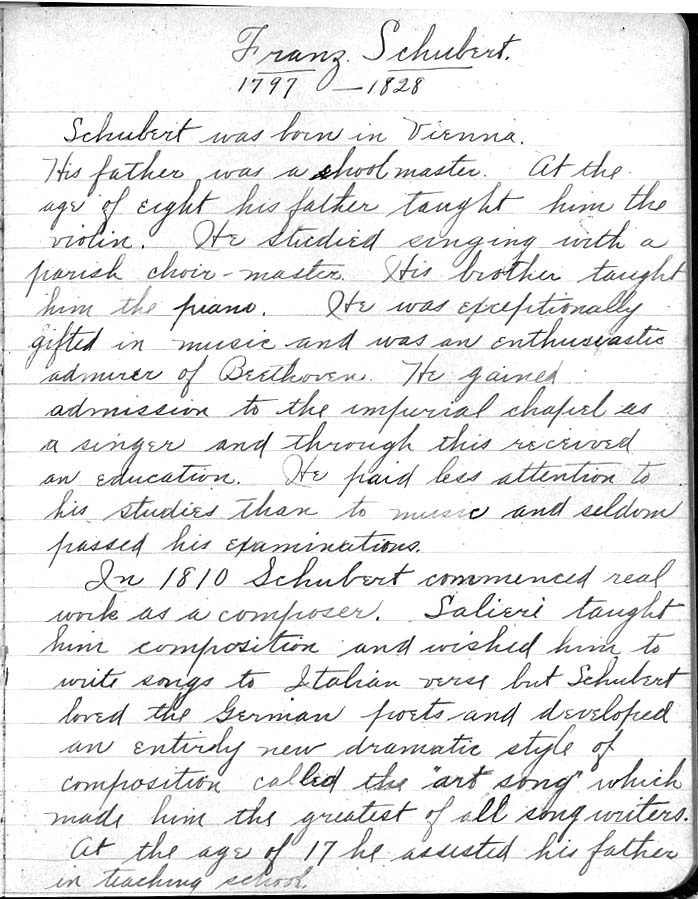 Franz Schubert.
1797 — 1828
Schubert was born in Vienna.
His father was a schoolmaster. At the
age of eight his father taught him the
violin. He studied singing with a
parish choir-master. His brother taught
him the piano. He was exceptionally
gifted in music and was an enthusiastic
admirer of Beethoven. He gained
admission to the imperial chapel as
a singer and through this received
an education. He paid less attention to
his studies than to music and seldom
passed his examinations.
In 1810 Schubert commenced real
work as a composer. Salieri taught
him composition and wished him to
write songs to Italian verse but Schubert
loved the German poets and developed
an entirely new dramatic style of
composition called the "art song" which
made him the greatest of all song writers.
At the age of 17 he assisted his father
in teaching school.